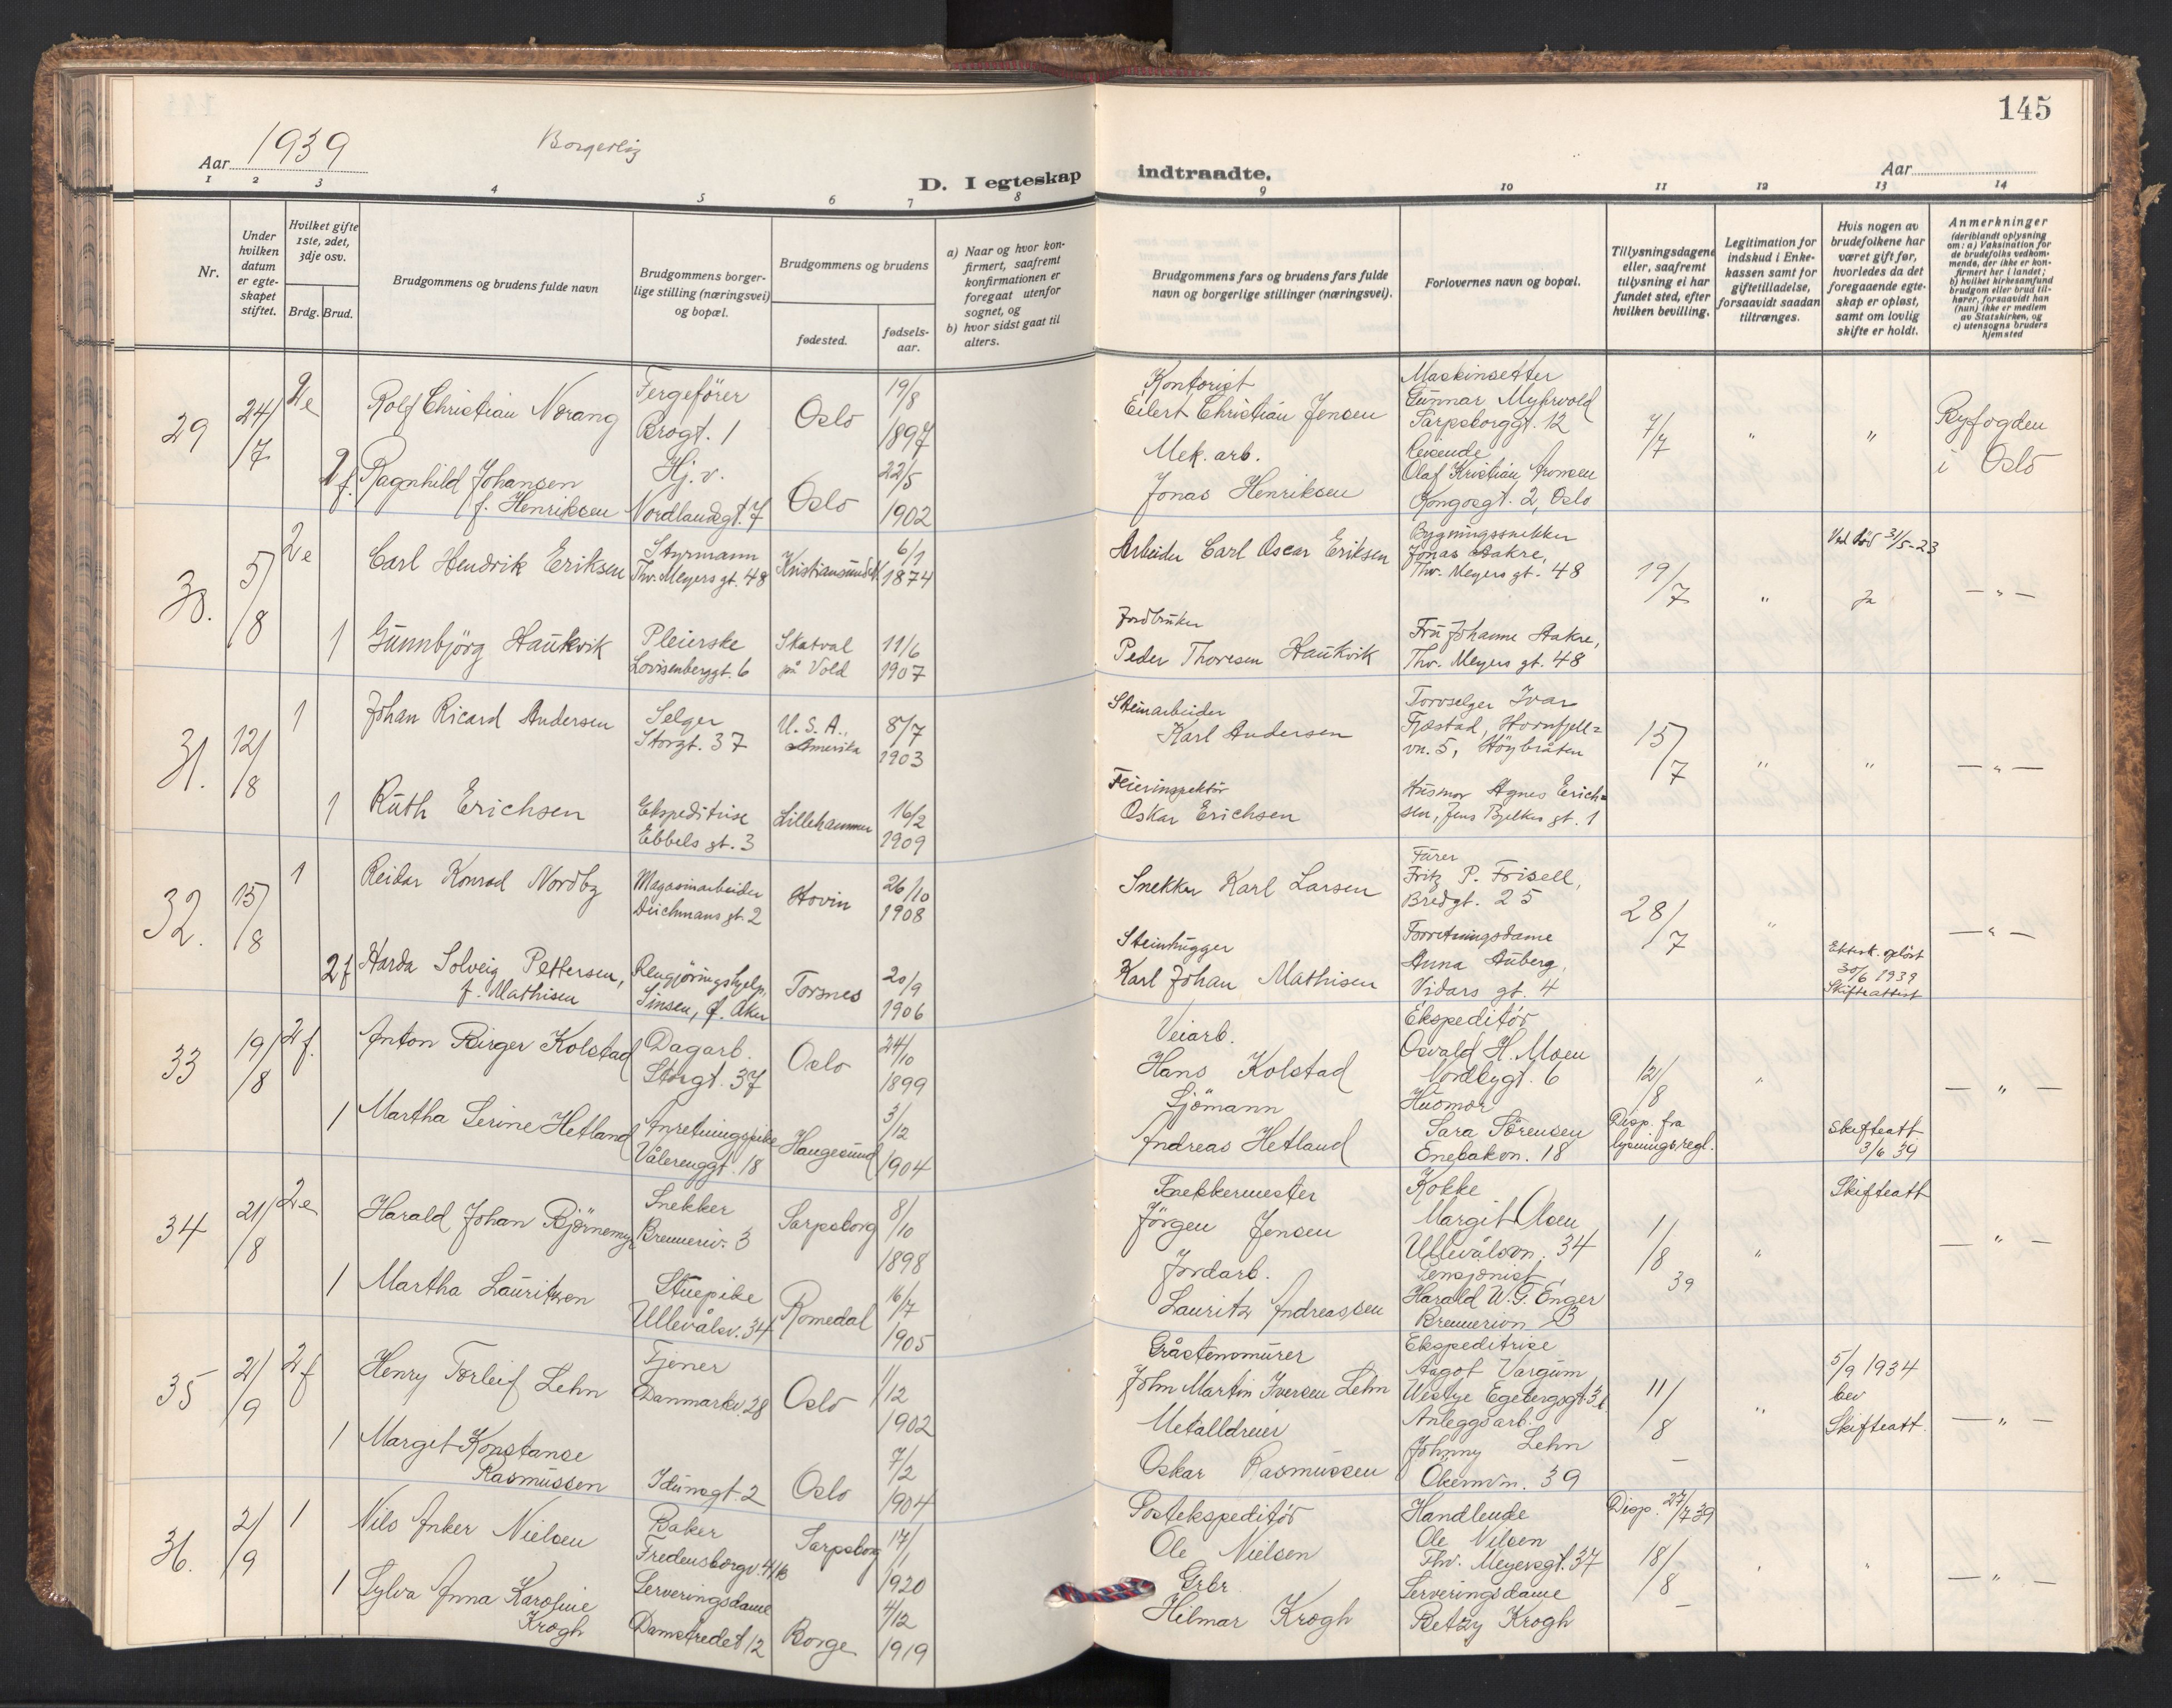 Aar 1939
Borgerlig
D. I egteskap indtraadte.
Aar
145
1 2 3 4 5 6 7 8 9 10 11 12 13 14
Nr.
Under hvilken datum er egteskapet stiftet.
Hvilket gifte 1ste, 2det, 3dje osv.
Brdg. Brud.
Brudgommens og brudens fulde navn
Brudgommens borgerlige stilling (næringsvei) og bopæl.
Brudgommens og brudens
fødested.
fødselsaar.
a) Naar og hvor konfirmert, saafremt konfirmationen er foregaat utenfor sognet, og
b) hvor sidst gaat til alters.
Brudgommens fars og brudens fars fulde navn og borgerlige stillinger (næringsvei).
Forlovernes navn og bopæl.
Tillysningsdagene eller, saafremt tillysning ei har fundet sted, efter hvilken bevilling.
Legitimation for indskud i Enkekassen samt for giftetilladelse, forsaavidt saadan tiltrænges.
Hvis nogen av brudefolkene har været gift før, hvorledes da det foregaaende egteskap er opløst, samt om lovlig skifte er holdt.
Anmerkninger
(deriblandt oplysning om: a) Vaksination for de brudefolks vedkommende, der ikke er konfirmert her i landet; b) hvilket kirkesamfund brudgom eller brud tilhører, forsaavidt han (hun) ikke er medlem av Statskirken, og c) utensogns bruders hjemsted
29 24/7 2e Rolf Christian Norang Fergefører Brogt. 1 Oslo 19/8 1897
2f. Ragnhild Johansen f. Henriksen Hj.v. Nordlandsgt. 7 Oslo 22/5 1902
Kontorist Eilert Christian Jensen
Mek. arb. Jonas Henriksen
Maskinsetter Gunnar Myhrvold Sarpsborggt. 12
Reisende Olaf Kristian Aronsen Kongosgt. 2, Oslo
7/7 " " Byfogden i Oslo
30. 5/8 2e Carl Hendrik Eriksen Styrmann Thv. Meyers gt. 48 Kristiansund N. 6/1 1874
1 Gunnbjörg Haukvik Pleierske Lovisenberggt. 6 Skatval på Vold 11/6 1907
Arbeider Carl Oscar Eriksen
Jordbruker Peder Thoresen Haukvik
Bygningssnekker Jonas Aakre, Thv. Meyers gt. 48
Fru Johanne Aakre, Thv. Meyers gt. 48
19/7 " Ved död 31/5-23 Ja — " —
31. 12/8 1 Johan Ricard Andersen Selger Storgt. 37 U.S.A., Amerika 8/7 1903
1 Ruth Erichsen Ekspeditrise Ebbels gt. 3 Lillehammer 16/2 1909
Steinarbeider Karl Andersen
Feierinspektör Oskar Erichsen
Torvselger Ivar Fjæstad, Hornfjellvn. 5, Höybråten
Husmor Agnes Erichsen, Jens Bjelkes gt. 1
15/7 " " — " —
32. 15/8 1 Reidar Konrad Nordby Magasinarbeider Deichmans gt. 2 Hovin 26/10 1908
2f Harda Solveig Pettersen, f. Mathisen Rengjöringshjelp. Sinsen, Ø. Aker Torsnes 20/9 1906
Snekker Karl Larsen
Steinhugger Karl Johan Mathisen
Fritz P. Frisell, Bredgt. 25
Forretningsdame Anna Auberg, Vidars gt. 4
28/7 " Ektesk. oplöst 30/6 1939 Skifteattest — " —
33 19/8 2f. Anton Birger Kolstad Dagarb. Storgt. 37 Oslo 24/10 1899
1 Martha Serine Hetland Anretningspike Vålerenggt. 18 Haugesund 3/12 1904
Veiarb. Hans Kolstad
Sjömann Andreas Hetland
Ekspeditör Osvald H. Moen Nordbygt. 6
Husmor Sara Sörensen Enebakvn. 18
12/8 Disp. fra lysningsregl. " Skifteatt. 3/6 39 — " —
34 21/8 2e Harald Johan Björnemyr Snekker Brenneriv. 3 Sarpsborg 8/10 1898
1 Martha Lauritzen Stuepike Ullevålsv. 34 Romedal 16/7 1905
Snekkermester Jörgen Jensen
Jordarb. Lauritz Andreassen
Kokke Margit Olsen Ullevålsvn. 34
Pensjonist Harald W. G. Enger Brennerivn 3
1/8 39 " Skifteatt — " —
35 2/9 2f Henry Torleif Lehn Tjener Danmarksv. 28 Oslo 1/12 1902
1 Margit Konstanse Rasmussen Idunsgt. 2 Oslo 7/2 1904
Gråstensmurer John Martin Iversen Lehn
Metalldreier Oskar Rasmussen
Ekspeditrise Aagot Vargum Westye Egebergsgt. 3
Anleggsarb. Johnny Lehn Ökernvn. 39
11/8 — " 5/9 1934 bev Skifteatt. — " —
36. 2/9 1 Nils Anker Nielsen Baker Fredensborgv. 41b Sarpsborg 17/1 1920
1 Sylva Anna Karoline Krogh Serveringsdame Damstredet 12 Borge 4/12 1919
Postekspeditör Ole Nielsen
Grbr. Hilmar Krogh
Handlende Ole Nilsen Thv. Meyersgt. 37
Serveringsdame Betzy Krogh
Disp. 27/7 39 18/8 — " " — " —